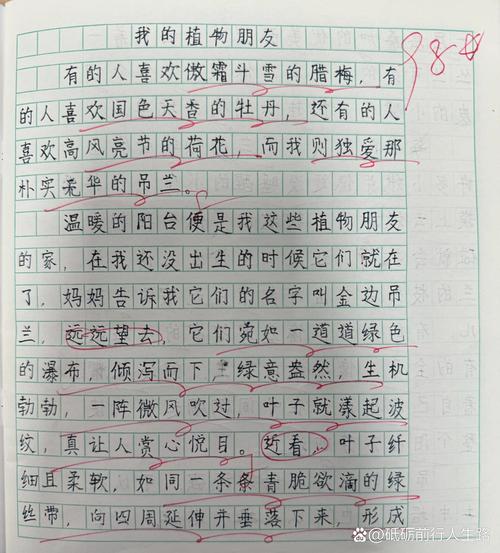 我的植物朋友
98
有的人喜欢傲霜斗雪的腊梅，有
的人喜欢国色天香的牡丹，还有的人
喜欢高风亮节的荷花，而我则独爱那
朴实无华的吊兰。
温暖的阳台便是我这些植物朋友
的家，在我还没出生的时候它们就在
了，妈妈告诉我它们的名字叫金边吊
兰，远远望去，它们宛如一道道绿色
的瀑布，倾泻而下，绿意盎然，生机
勃勃，一阵微风吹过，叶子就漾起波
纹，真让人赏心悦目。近看，叶子纤
细且柔软，如同一条条青脆欲滴的绿
丝带，向四周延伸并垂落下来，形成
@砥砺前行人生路